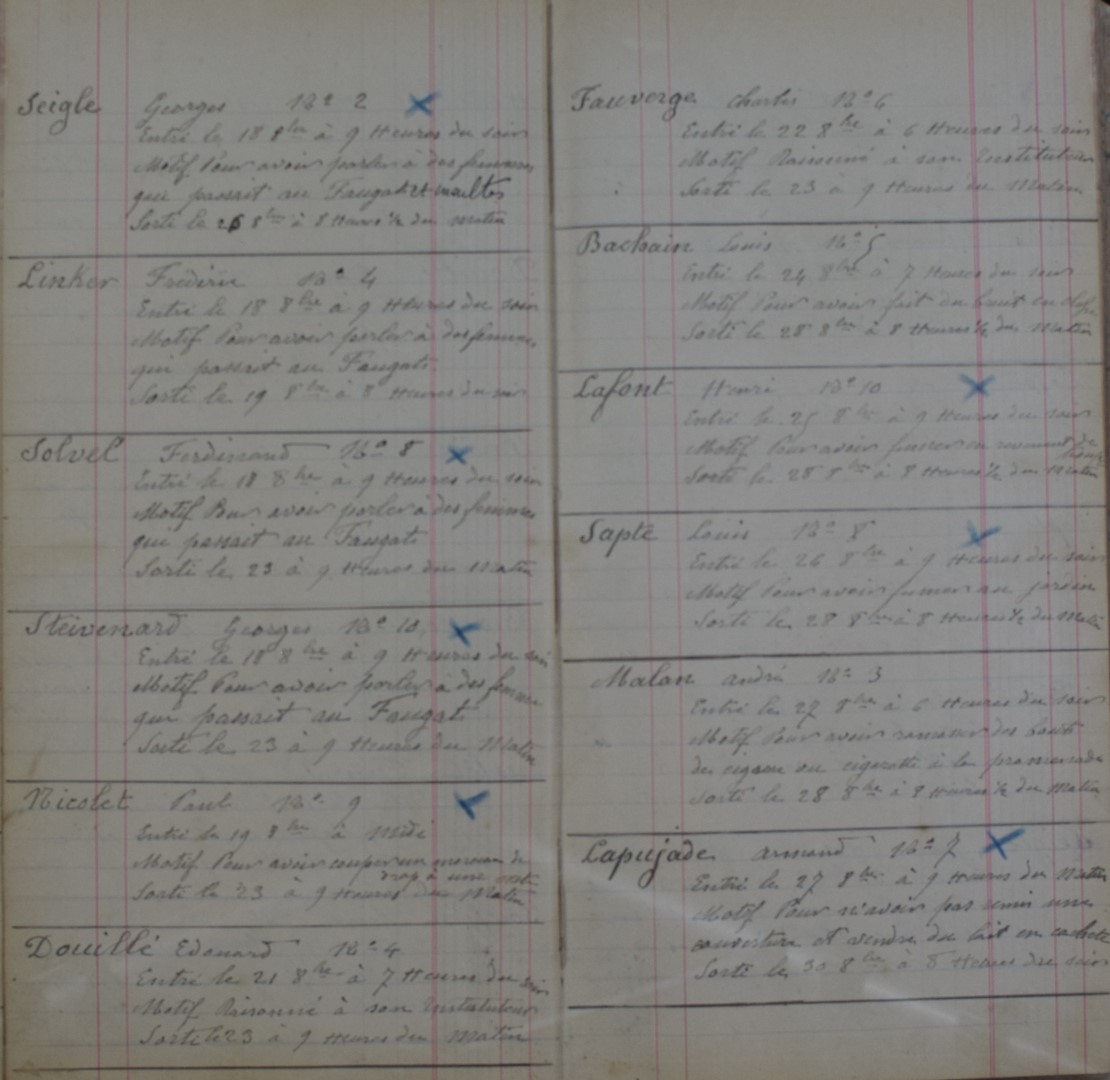 Seigle Georges No 2
Entré le 18 8bre à 9 Heures du soir
Motif Pour avoir parler à des femmes
qui passait au Faugats et insultes
Sorti le 26 8bre à 8 Heures ½ du matin
Linker Frédéric No 4
Entré le 18 8bre à 9 Heures du soir
Motif Pour avoir parler à des femmes
qui passait au Faugats
Sorti le 19 8bre à 8 Heures du soir
Solvel Ferdinand No 8
Entré le 18 8bre à 9 Heures du soir
Motif Pour avoir parler à des femmes
qui passait au Faugats
Sorti le 23 à 9 Heures du Matin
Steivenard Georges No 10
Entré le 18 8bre à 9 Heures du soir
Motif Pour avoir parler à des femmes
qui passait au Faugats
Sorti le 23 à 9 Heures du Matin
Nicolet Paul No 9
Entré le 19 8bre à Midi
Motif Pour avoir couper un morceau de
drap à une
Sorti le 23 à 9 Heures du Matin
Douillé Edouard No 4
Entré le 21 8bre à 7 Heures du soir
Motif Raisonné à son Instituteur
Sorti le 23 à 9 Heures du Matin
Fauverge Charles No 6
Entré le 22 8bre à 6 Heures du soir
Motif Raisonné à son Instituteur
Sorti le 23 à 9 Heures du Matin
Bachain Louis No 5
Entré le 24 8bre à 7 Heures du soir
Motif Pour avoir fait du bruit en classe
Sorti le 28 8bre à 8 Heures ½ du Matin
Lafont Henri No 10
Entré le 25 8bre à 9 Heures du soir
Motif Pour avoir fumer en revenant de
Sorti le 28 8bre à 8 Heures ½ du Matin
Sapte Louis No 8
Entré le 26 8bre à 9 Heures du soir
Motif Pour avoir fumer au jardin
Sorti le 28 8bre à 8 Heures ½ du Matin
Malan andré No 3
Entré le 27 8bre à 6 Heures du soir
Motif Pour avoir ramasser des bouts
de cigare ou cigarette à la promenade
Sorti le 28 8bre à 8 Heures ½ du Matin
Lapujade armand No 7
Entré le 27 8bre à 9 Heures du Matin
Motif Pour n'avoir pas remis une
couverture et vendre du lait en cachette
Sorti le 30 8bre à 8 Heures du soir